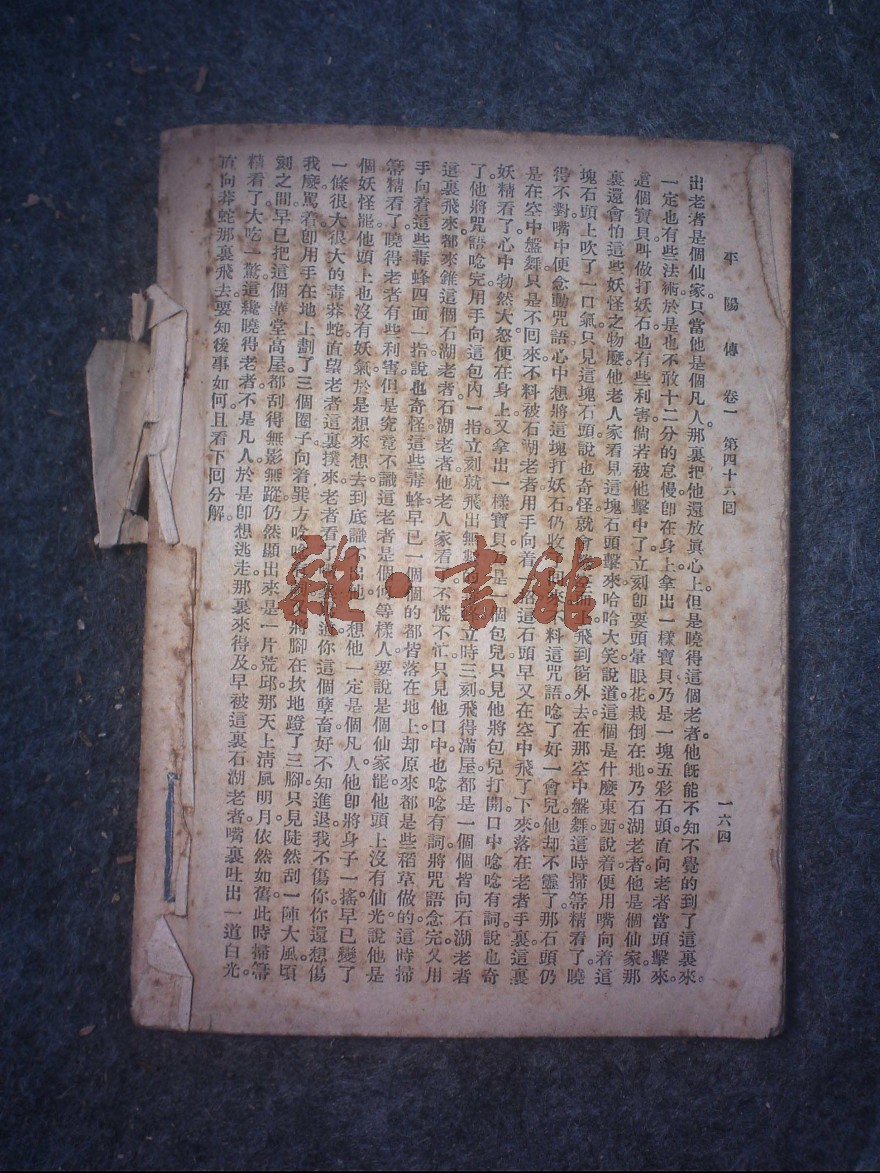 平陽傳 卷一 第四十六回 一六四
出老者是個仙家。只當他是個凡人。那裏把他還放眞心上。但是曉得這個老者。他旣能不知不覺的到了這裏來。
一定也有些法術。於是也不敢十二分的怠慢。卽在身上拿出一樣寶貝。乃是一塊五彩石頭。直向老者當頭擊來。
這個寶貝。叫做打妖石。也有些利害。倘若被他擊中了。立刻卽要頭暈眼花。栽倒在地。乃石湖老者。他是個仙家。那
裏還會怕這些妖怪之物麽。他老人家看見這塊石頭擊來。哈哈大笑。說道。這個是什麽東西。說着便用嘴向着這
塊石頭上吹了一口氣。只見這塊石頭。說也奇怪。就會飛到窗外去。在那空中盤舞。這時掃箒精看了。曉
得不對。嘴中便念動咒語。心中想將這塊打妖石仍收回來。不料這咒語唸了好一會兒。他却不靈了。那石頭仍
是在空中盤舞。只是不回來。不料被石湖老者用手向着這石頭。早又在空中飛了下來。落在老者手裏。這裏
妖精看了。心中勃然大怒。便在身上又拿出一樣寶貝。是一個包兒。只見他將包兒打開。口中唸唸有詞。說也奇
了。他將咒語唸完。用手向這包內一指。立刻就飛出無數立時三刻飛得滿屋都是。一個個皆向石湖老者
這裏飛來。都來錐這個石湖老者。石湖老者他老人家看了。不慌不忙。只見他口中也唸唸有詞。將咒語念完。又用
手向着這些毒蜂四面一指。說也奇怪。這些毒蜂早已一個個的都皆落在地上。却原來都是些稻草做的。這時掃
箒精看了。曉得老者有些利害。但是究竟不識這老者是個何等樣人。要說是個仙家罷。他頭上沒有仙光。說他是
個妖怪罷。他頭上也沒有妖氣。於是想來想去。到底識不出他。想他一定是個凡人。他卽將身子一搖。早已變了
一條很大很大的毒莽蛇。直望老者這裏撲來。老者看了你這個孽畜。好不知進退。我不傷你。你還想傷
我麽。罵着。卽用手在地上劃了三個圈子。向着巽方唸唸將腳在坎地蹬了三腳。只見陡然刮一陣大風。頃
刻之間。早已把這個華堂高屋都刮得無影無蹤。仍然顯出來是一片荒邱。那天上淸風明月。依然如舊。此時掃箒
精看了。大吃一驚。這纔曉得老者。不是凡人。於是卽想逃走。那裏來得及。早被這裏石湖老者。嘴裏吐出一道白光。
直向莽蛇那裏飛去。要知後事如何。且看下回分解。
雜·書館